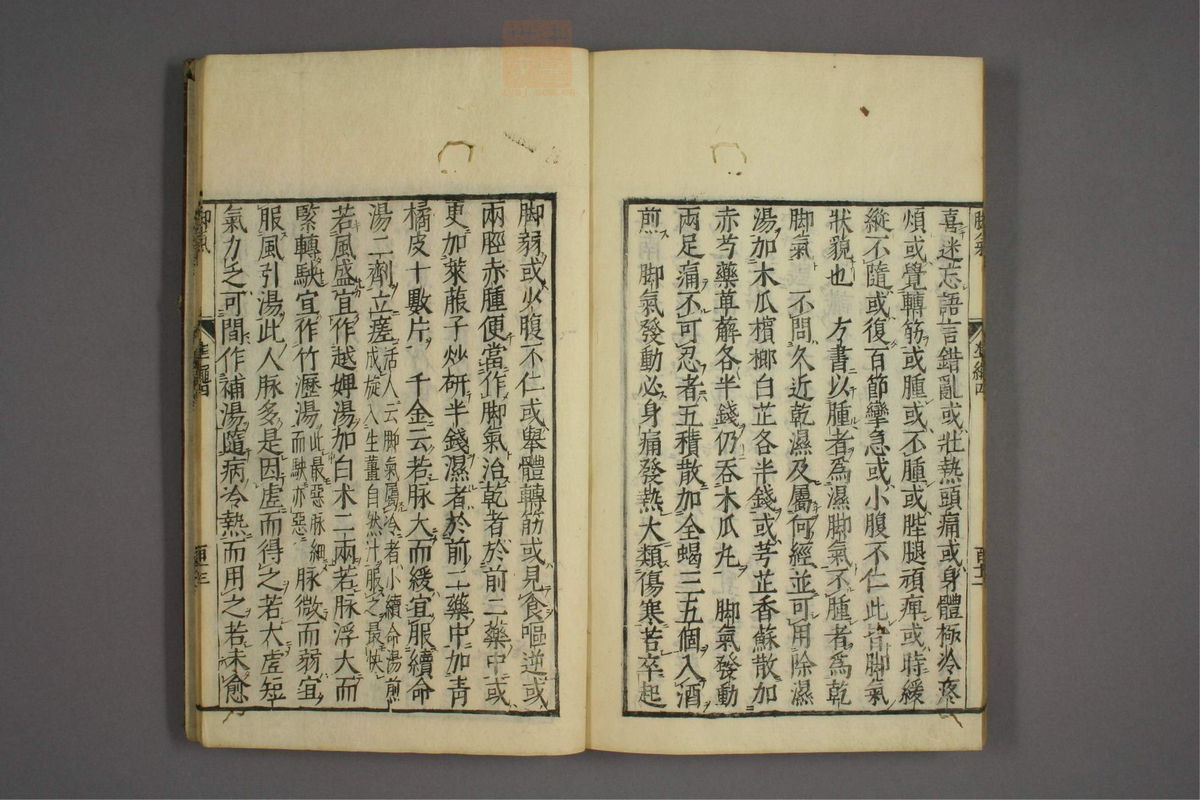 喜迷忘語言錯亂或壯熱頭痛或身體極冷疼
煩或覺轉筋或腫或不腫或䏶腿頑痺或時緩
縱不隨或復百節攣急或小腹不仁此皆脚氣
狀貌也　方書以腫者爲濕脚氣不腫者爲乾
脚氣　不問久近乾濕及屬何經並可用除濕
湯加木瓜檳榔白芷各半錢或芎芷香蘇散加
赤芍藥萆薢各半錢仍吞木瓜丸　脚氣發動
兩足痛不可忍者五積散加全蝎三五個入酒
煎　脚氣發動必身痛發熱大類傷寒若卒起
脚弱或少腹不仁或舉體轉筋或見食嘔逆或
兩脛赤腫便當作脚氣治乾者於前二藥中或
更加萊菔子炒研半錢濕者於前二藥中加青
橘皮十數片　千金云若脉大而緩宜服續命
湯二劑立瘥活人云脚氣屬冷者小續命湯煎
成旋入生薑自然汁服之最快
若風盛宜作越婢湯加白术二兩若脉浮大而
緊轉駃宜作竹瀝湯此最惡脉細
而駃亦惡脉微而弱宜
服風引湯此人脉多是因虛而得之若大虛短
氣力乏可間作補湯隨病冷熱而用之若未愈
脚氣
準繩四